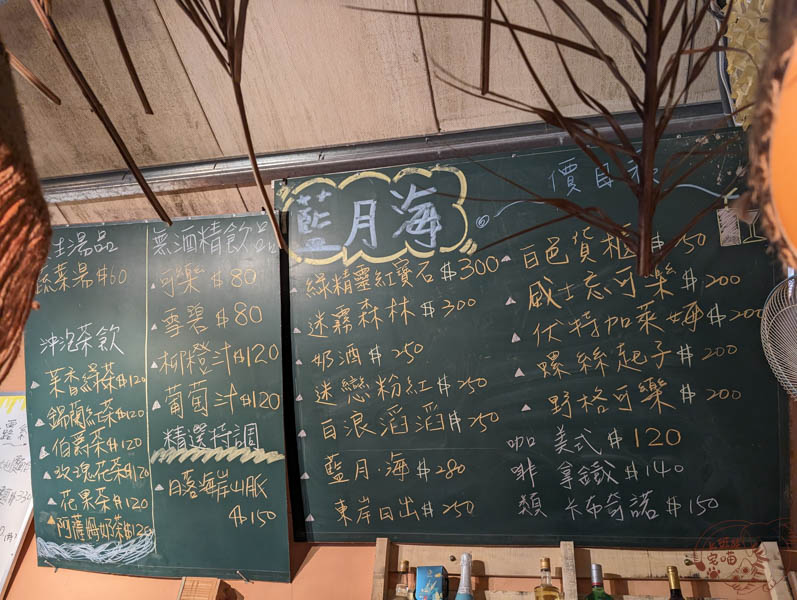 湯品
蔬菜湯 $60
沖泡茶飲
茉香綠茶$120
錫蘭紅茶$120
伯爵茶$120
玫瑰花茶$120
花果茶$120
阿薩姆奶茶$120
無酒精飲品
可樂 $80
雪碧 $80
柳橙汁$120
葡萄汁$120
精選特調
日落海岸山脈
$150
藍月海
價目表
綠精靈紅寶石$300
迷霧森林 $300
奶酒 $250
迷戀粉紅$250
白浪滔滔$250
藍月海$280
東岸日出$250
百色貨櫃 $
威士忌可樂$200
伏特加萊姆$200
螺絲起子$200
野格可樂$200
咖啡類
美式$120
拿鐵$140
卡布奇諾$150